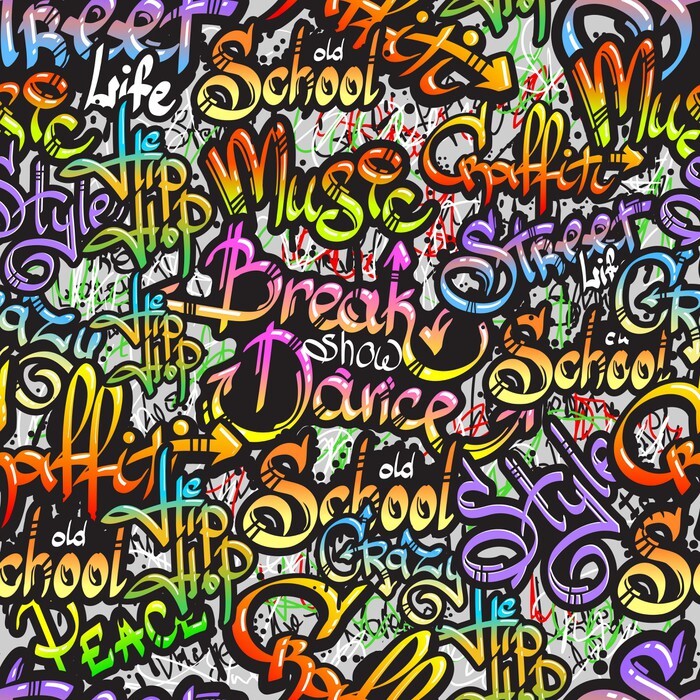 Street
Life
old
School
Graffiti
Music
Music
Hip
Hop
Music
Graffiti
Style
Street
Life
Break
show
Dance
Crazy
Hip
Hop
School
Graffiti
old
School
Style
Hip
Hop
old
School
Crazy
Peace
Graffiti
Hip
Hop
Street